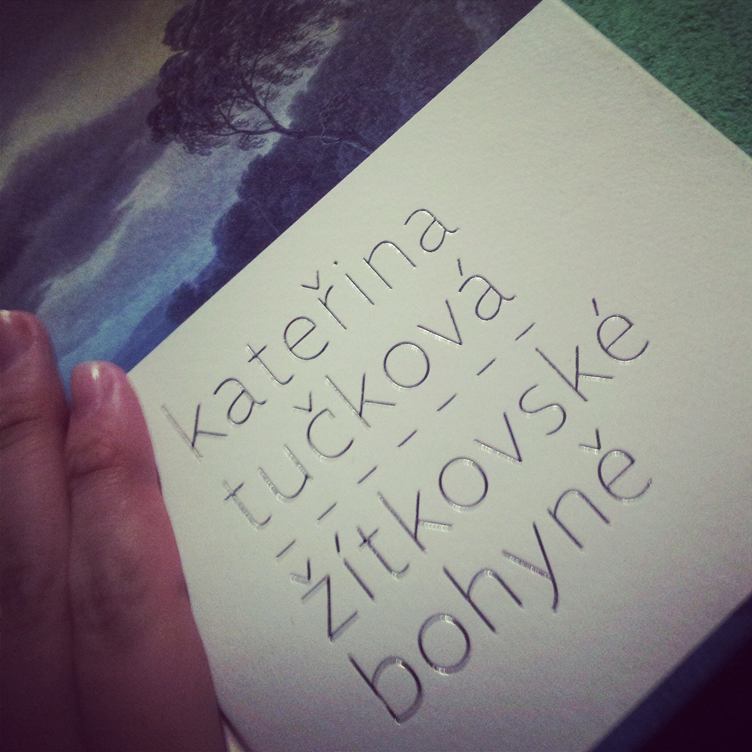 kateřina
tučková
– – – – – –
žítkovské
bohyně